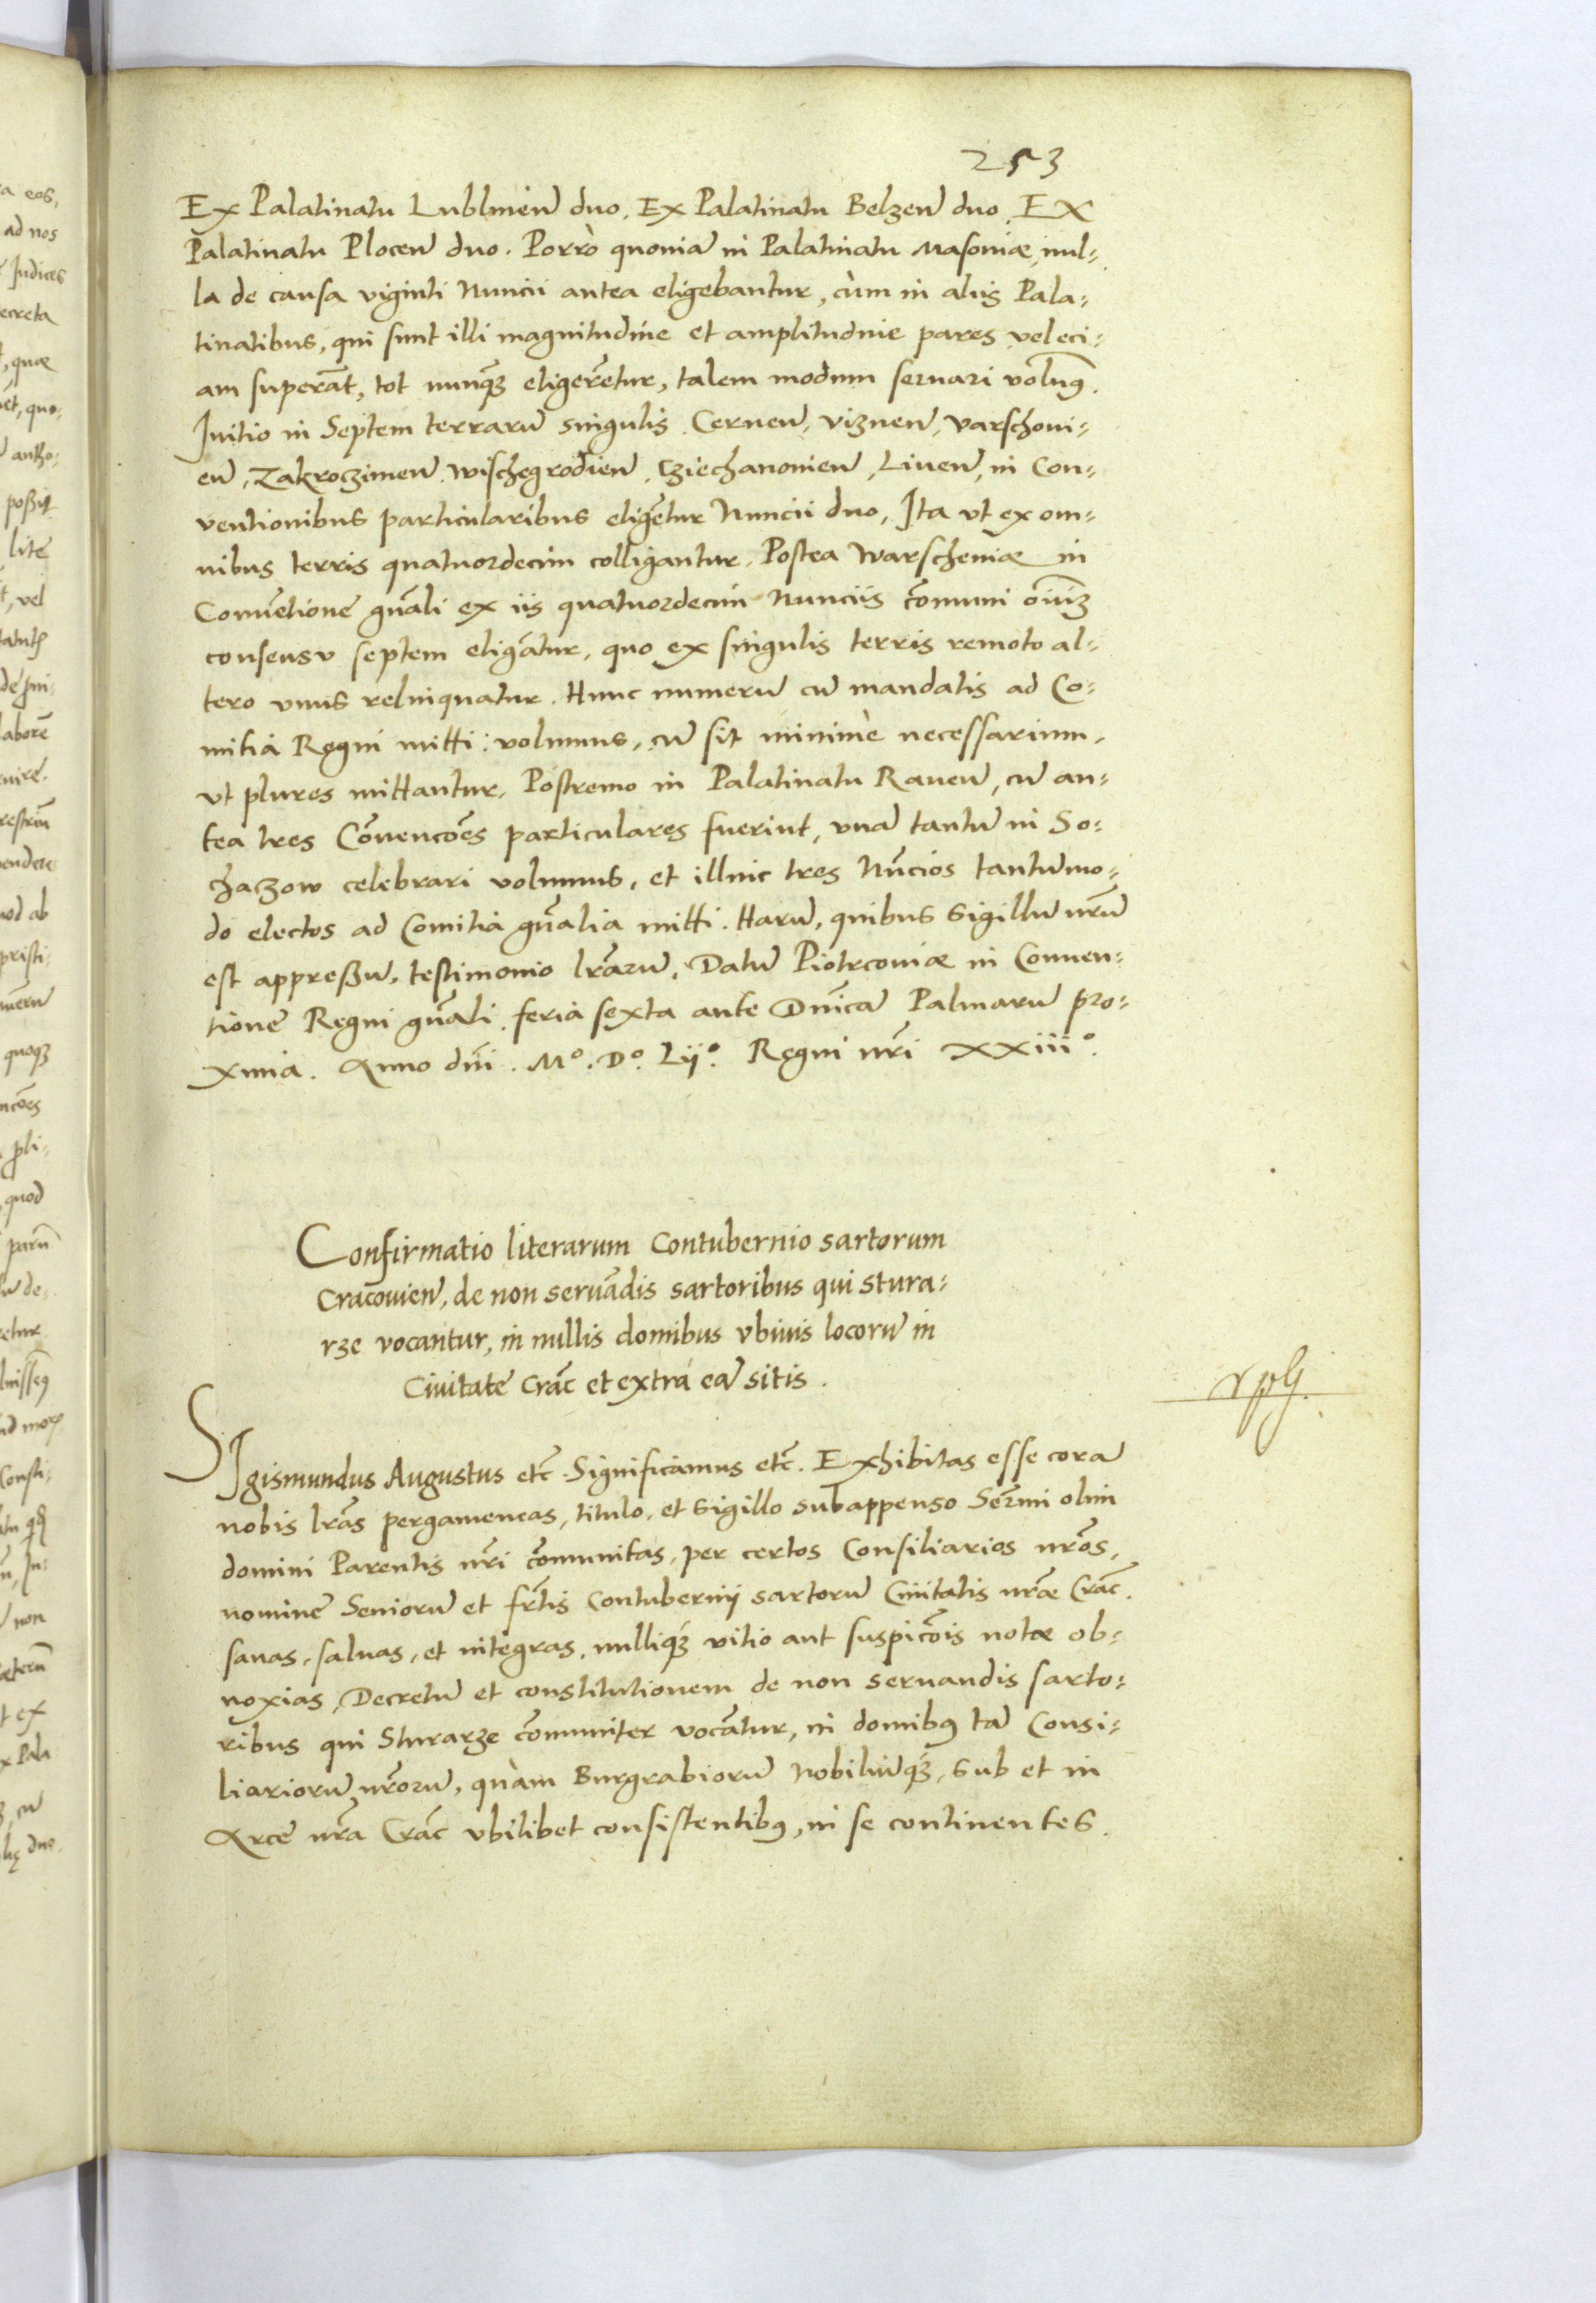 253
Ex Palatinatu Lublineñ duo. Ex Palatinatu Belzeñ duo. Ex
PalatinatuPloceñ duo. Porrò quoniã in Palatinatu Masoviæ, nul-
la de causa viginti Nuncii antea eligebantur, cùm in aliis Pala-
tinatibus, qui sunt illi magnitudine et amplitudine pares vel eci-
am superãt, tot nunq̃ꝫ eligerẽtur, talem modum seruari volum⁹.
Initio in Septem terrarũ singulis. Cerneñ, Vizneñ, Varschoui-
eñ, Zakroczimeñ, Wischegrodieñ, Cziechanonieñ, Liueñ, in Con-
ventionibus particularibus eligẽtur Nuncii duo, Ita vt ex om-
nibus terris quatuordecim colligantur. Postea Warscheuiæ in
Conuẽtione gñali ex iis quatuordecim Nunciis cõmuni oĩuꝫ
consensu septem eligãtur, quo ex singulis terris remoto al-
tero vnus relinquatur. Hunc numerũ cũ mandatis ad Co-
mitia Regni mitti volumus, cũ sit minimè necessarium,
vt plures mittantur. Postremo in Palatinatu Raueñ, cũ an-
tea tres Cõuencões particulares fuerint, vnã tantũ in So-
chaczow celebrari volumus, et illinc tres Nũcios tantũmo-
do electos ad Comitia gñalia mitti. Harũ, quibus Sigillũ nr̃ũ
est appreßũ, testimonio lr̃arũ. Datũ Piotrcouiæ in Conuen-
tione Regni gñali, feria sexta ante Dñicã Palmarũ pro-
xima. Anno dñi. Mº. Dº. Lijº. Regni nr̃i XXiiiº.
Confirmatio literarum Contubernio sartorum
Cracouieñ, de non seruãdis sartoribus qui stura-
rze vocantur, in nullis domibus vbiuis locorũ in
Ciuitate Crac̃ et extra eã sitis.
SIgismundus Augustus etc̃. Significamus etc̃. Exhibitas esse corã
nobis lr̃as pergameneas, titulo, et Sigillo subappenso Ser̃mi olim
domini Parentis nr̃i cõmunitas, per certos Consiliarios nr̃os,
nomine Seniorũ et fr̃tis Contubernij sartorũ Ciuitatis nr̃æ Crac̃.
sanas, saluas, et integras, nulliq́ꝫ vitio aut suspicõis notæ ob-
noxias, Decretũ et constitutionem de non seruandis sarto-
ribus qui Sturarze cõmuniter vocãtur, in domib⁹ tã Consi-
liariorũ nr̃orũ, quàm Burgrabiorũ Nobiliũq́ꝫ, sub et in
Arce nr̃a Crac̃ vbilibet consistentib⁹, in se continentes.